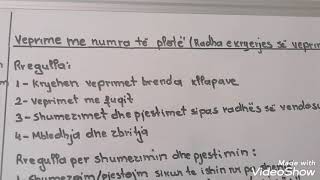 Veprime me numra të plotë (Radha e kryerjes së veprim
Rregulla:
1- Kryehen veprimet brenda kllapave
2- Veprimet me fuqit
3- Shumezimet dhe pjestimet sipas radhës së vendosu
4- Mbledhja dhe zbritja
Rregulla per shumezimin dhe pjestimin:
1- Shumezojm/pjestojm sikun te ishin
Made with
VideoShow